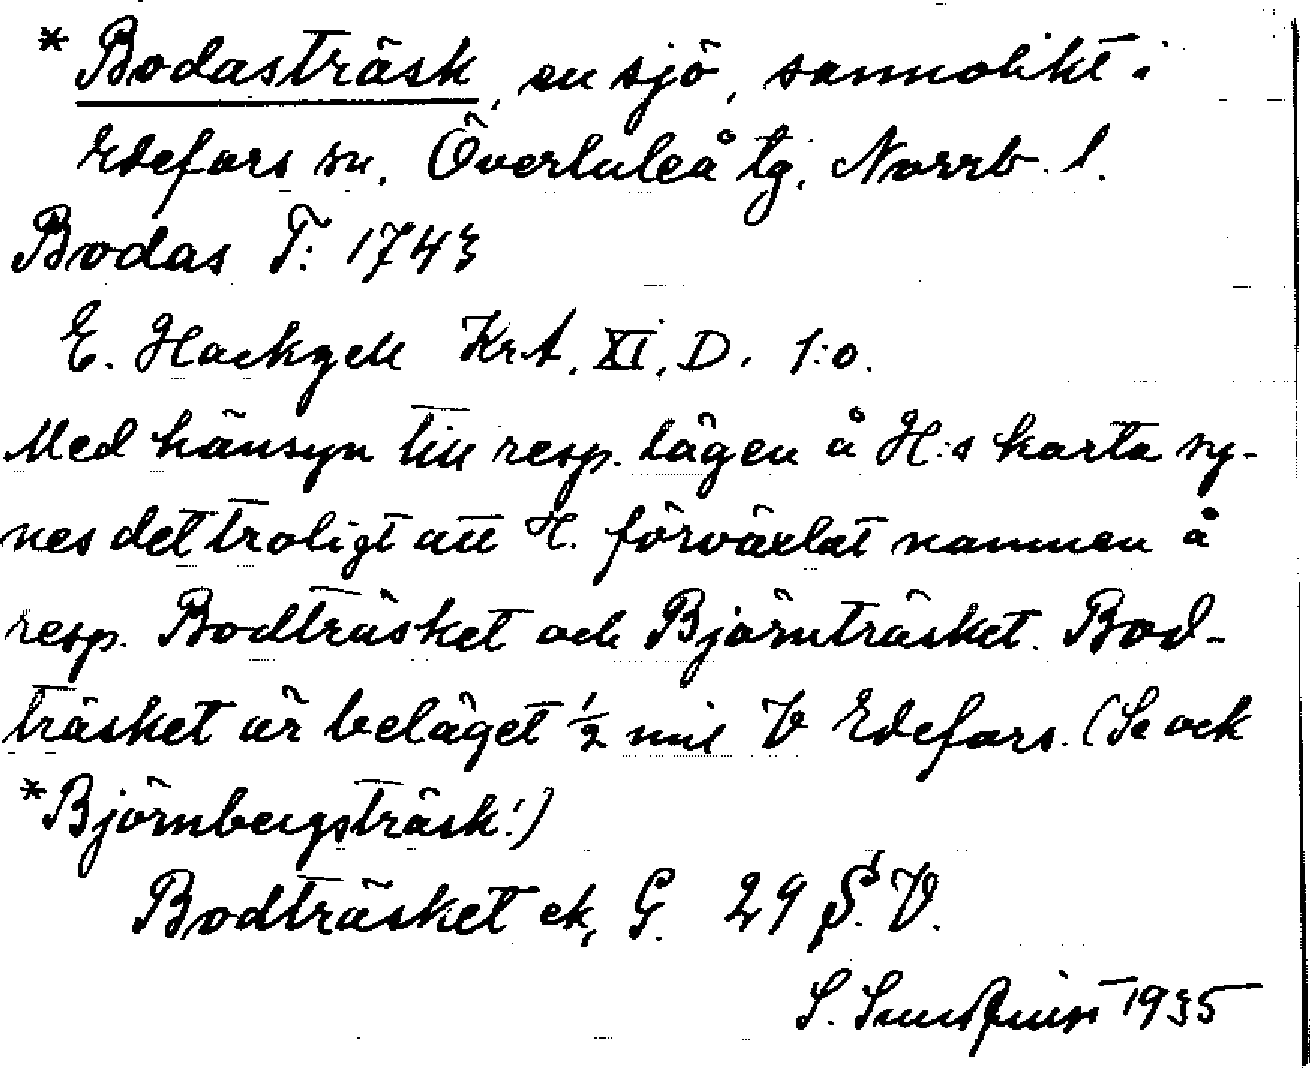 *Bodasträsk, en sjö, sannolikt i
Edefors sn. Överluleå tg. Norrb. l.
Bodas T: 1743
E. Hackzell Krt. XI. D. 1:o.
Med hänsyn till resp. lägen å H:s karta sy-
nes det troligt att H. förväxlat namnen å
resp. Bodträsket och Björnträsket. Bod-
träsket är beläget ½ mil V Edefors. (Se ock
*Björnbergsträsk!)
Bodträsket ek. G. 29 S. V.
S. Sundquist 1935